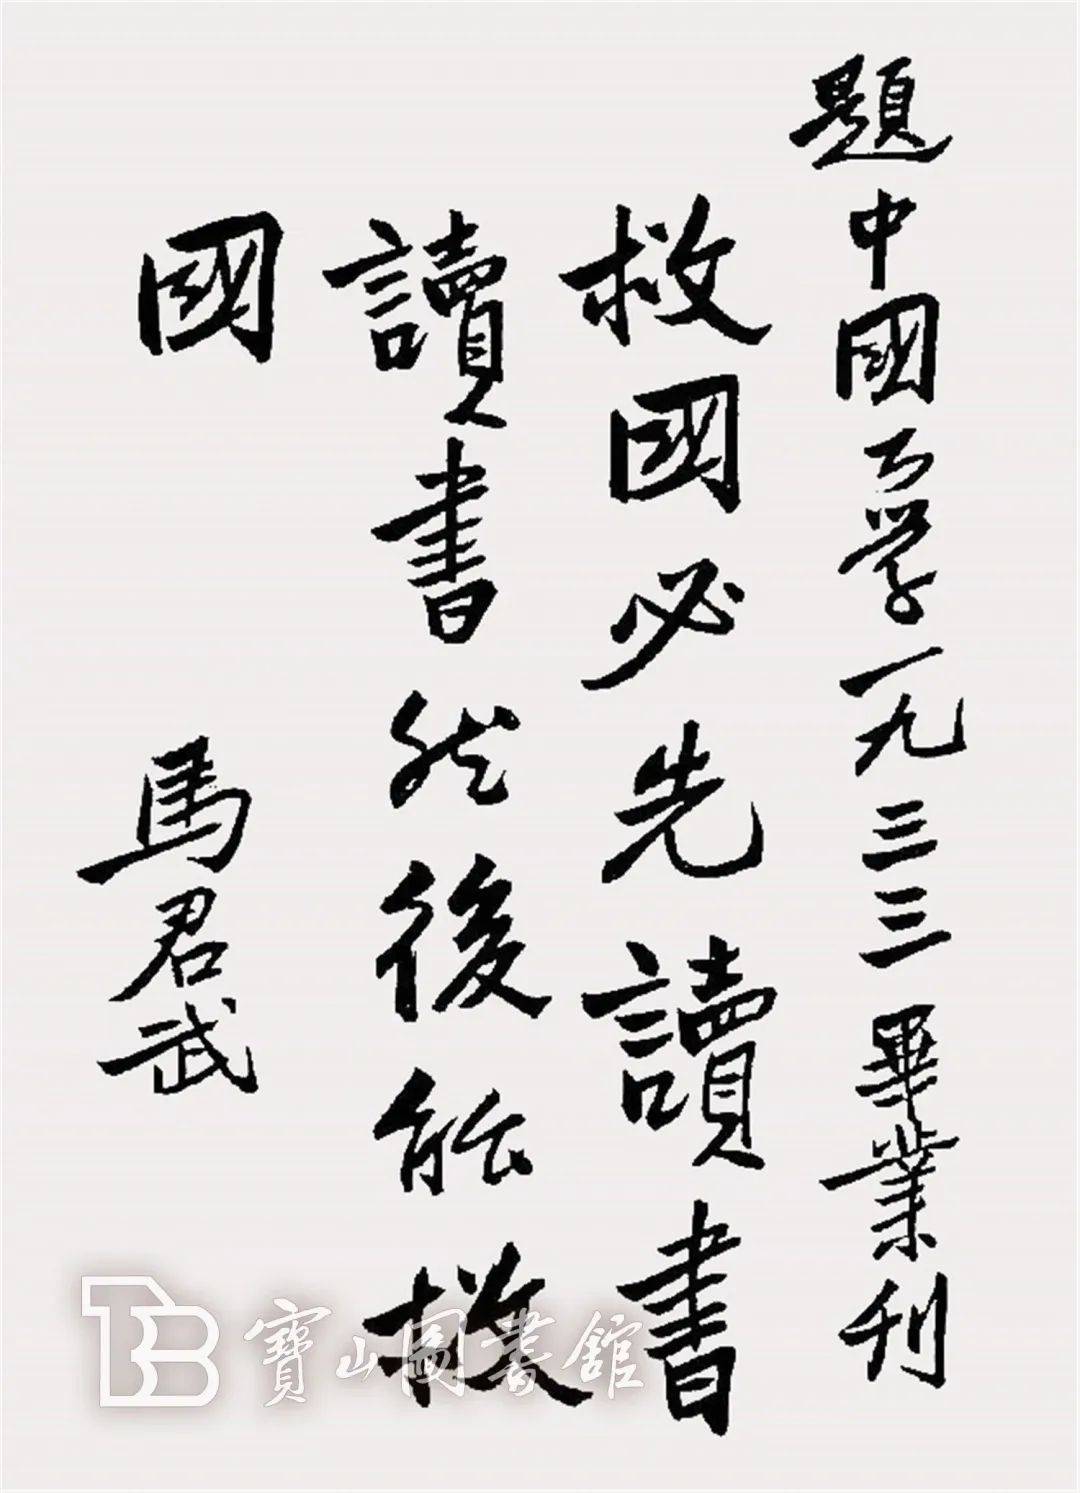 題中國公學一九三三畢業刊
救國必先讀書
讀書然後能救
國
馬君武
寶山圖書館